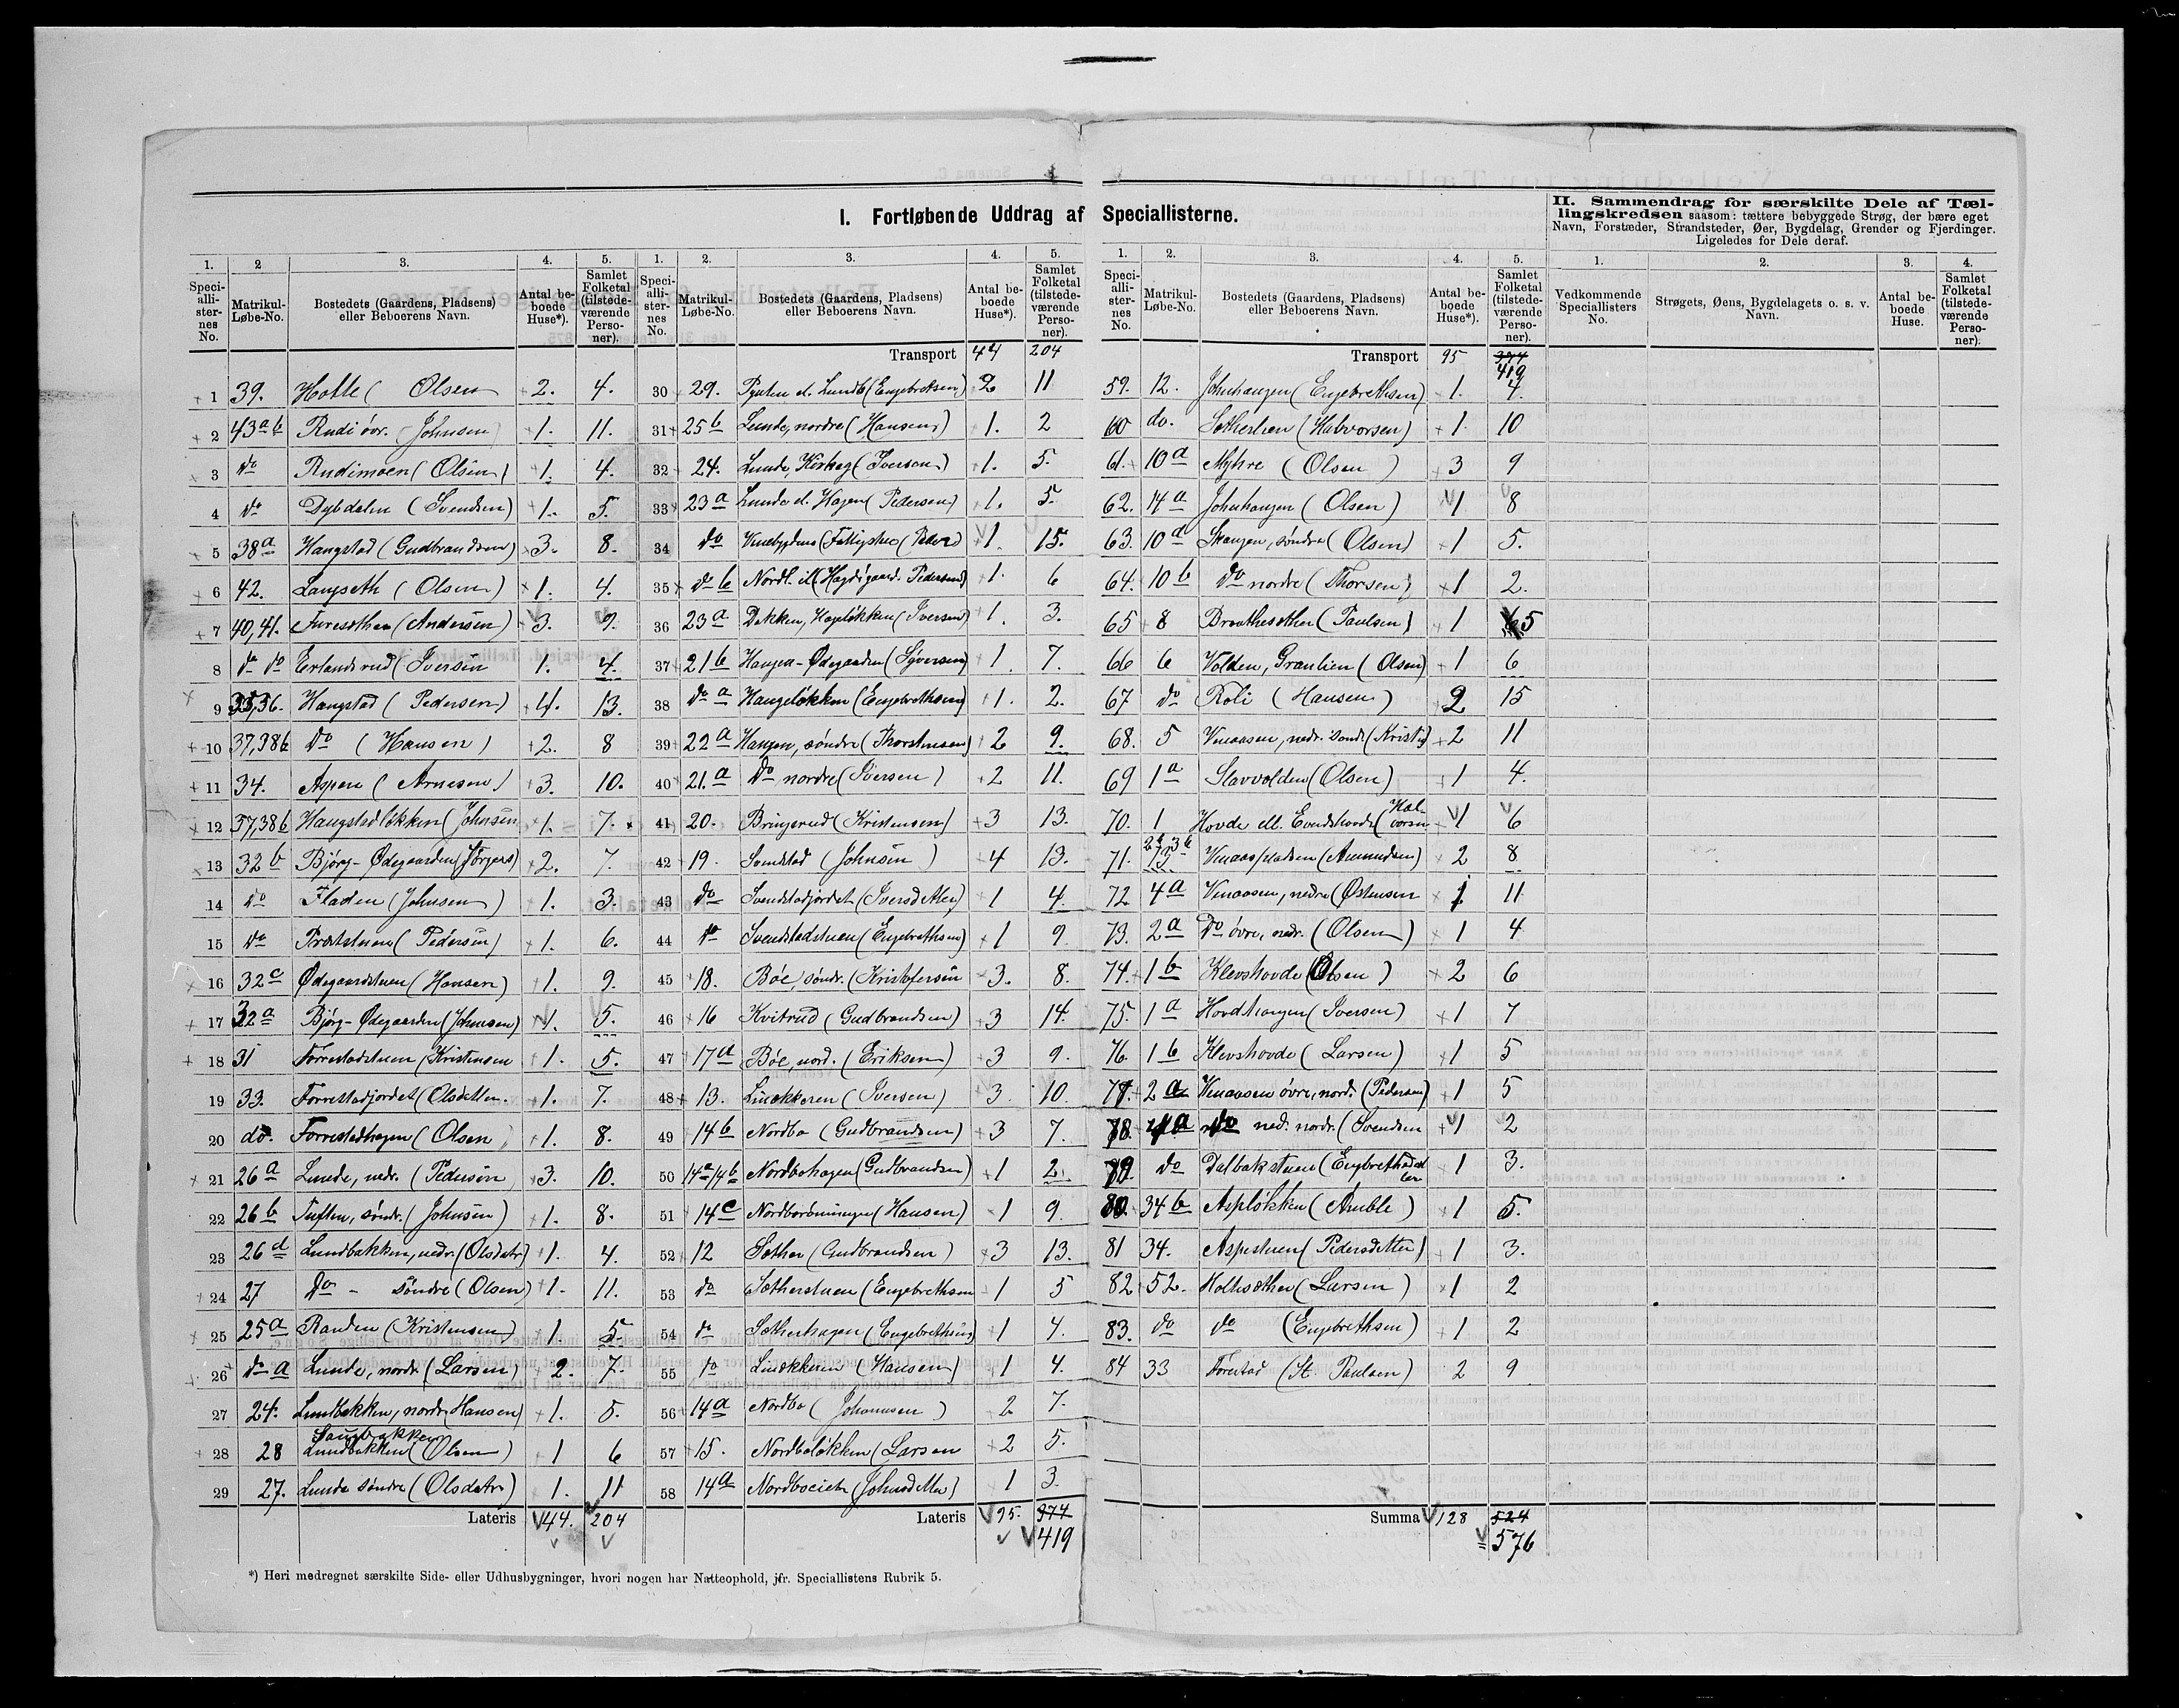 I. Fortløbende Uddrag af Speciallisterne.
II. Sammendrag for særskilte Dele af Tæl-
lingskredsen saasom: tættere bebyggede Strøg, der bære eget
Navn, Forstæder, Strandsteder, Øer, Bygdelag, Grender og Fjerdinger.
Ligeledes for Dele deraf.
1. 2 3. 4. 5.
Speci-alli-ster-nes No. Matrikul-Løbe-No. Bostedets (Gaardens, Pladsens) eller Beboerens Navn. Antal be-boede Huse*). Samlet Folketal (tilstede-værende Perso-ner).
1 39. Holte ( Olsen 2. 4.
2 43 a b Rudi övr. (Johnsen) 1. 11.
3 do Rudimoen (Olsen) 1. 4.
4 do Dybdalen (Svendsen) 1. 5.
5 38a Haugstad (Gudbrandsen) 3. 8.
6 42. Langseth (Olsen) 1. 4.
7 40,41. Furesothen (Andersen) 3. 9.
8 do do Erlandsrud (Iversen 1. 4.
9 35,36. Haugstad (Pedersen) 4. 13.
10 37,38b do (Hansen) 2. 8
11 34. Aspen (Arnesen) 3. 10.
12 37,38b Haugstadløkken (Johnsen 1. 7.
13 32b Bjørg-Ødegaarden (Jørgens) 2. 7.
14 do Fladen (Johnsen) 1. 3.
15 do (Pedersen) 1. 6.
16 32c Ødegaardstuen (Hansen) 1. 9.
17 32a Bjørg-Ødegaarden (Johnsen) 1. 5.
18 31 Forrestadstuen (Kristensen 1. 5.
19 33. Forrestadjordet (Olsdatter. 1. 7.
20 do. Forrestadhagen (Olsen) 1. 8.
21 26a Lunde, nedr. (Pedersen 3. 10.
22 26b Tuften, søndr. (Johnsen) 1. 8.
23 26d Lundbakken, nedr. (Olsdatr) 1. 4.
24 27 do - söndre (Olsen) 1. 11.
25 25a Randen (Kristensen) 1. 5.
26 do a Lunde, nordr. (Larsen) 2. 7.
27 24. Lundbakken, nordr. Hansen) 1. 5.
28 28 Lundbakken (Olsen) 1 6
29 27. Lunde söndre (Olsdatr) 1. 11
Lateris 44. 204
1. 2. 3. 4. 5.
Speci-alli-ster-nes No. Matrikul-Løbe-No. Bostedets (Gaardens, Pladsens) eller Beboerens Navn. Antal be-boede Huse*). Samlet Folketal (tilstede-værende Perso-ner).
Transport 44 204
30 29. el. Lundb (Engebretsen) 2 11
31 25b Lunde, nordre (Hansen) 1. 2
32 24. Lunde, Kirkeg (Iversen) 1. 5.
33 23a Lunde el. Hagen (Pedersen) 1. 5.
34 do 1. 15.
35 do b (Pedersen) 1. 6
36 23a Dekken, Hageløkken (Iversen) 1. 3.
37 21b Haugen-Ødegaarden (Syversen) 1 7.
38 do a Haugeløkken (Engebrethsen) 1. 2.
39 22a Haugen, söndre (Thorstensen) 2 9.
40 21.a do nordre (Iversen) 2 11.
41 20. Bringerud (Kristensen) 3 13.
42 19. Svendstad (Johnsen) 4 13.
43 do Svendstadjordet (Iversdetter) 1 4.
44 do Svendstadstuen (Engebrethsen) 1 9
45 18. Böe, söndr. (Kristofersen 3. 8.
46 16 Kvitrud (Gudbrandsen) 3 14.
47 17a Böe, nord. (Eriksen) 3 9.
48 13. Linøkkeren (Iversen) 3 10.
49 14b Nordbo (Gudbrandsen) 3 7.
50 14a 14b Nordbohagen (Gudbrandsen) 1 2.
51 14c (Hansen) 1 9
52 12 Sother (Gudbrandsen) 3 13.
53 do Sotherstuen (Engebrethsen 1 5
54 do Sotherhagen (Engebrethsen) 1 4.
55 do (Hansen) 1 4.
56 14a Nordbo (Johannesen) 2 7.
57 15. Nordboløkken (Larsen 2 5.
58 14a (Johnsdetter) 1 3.
Lateris 95. 374
419
1. 2. 3. 4. 5.
Speci-alli-ster-nes No. Matrikul-Løbe-No. Bostedets (Gaardens, Pladsens) eller Beboerens Navn. Antal be-boede Huse*). Samlet Folketal (tilstede-værende Perso-ner).
Transport 95 374
419
59. 12. Johnhaugen (Engebrethsen) 1. 4.
60 do. (Halvorsen) 1. 10
61. 10a Myhre (Olsen) 3 9
62. 14a Johnhaugen (Olsen) 1 8
63. 10a Skaugen, söndre (Olsen) 1 5.
64. 10b do nordre (Thorsen) 1 2.
65 8 Braathesother (Paulsen) 1 5
66 6 Volden, Granlien (Olsen) 1 6
67 do Roli (Hansen) 2 15
68. 5 2 11
69 1a Slavvolden (Olsen) 1 4.
70. 1 Hovde ell. (Halvorsen 1 6
71. Vinaaspladsen (Amundsen) 2 8
72 4a Vinaasen, nedre (Østensen 1 11
73. 2a do övre, nedr. (Olsen) 1 4
74. 1b Klevshovde (Olsen) 2 6
75. 1a Hovdhaugen (Iversen) 1 7
76. 1b Klevshovde (Larsen) 1 5
77. 2a Vinaasen övre, nord. (Pedersen) 1 5
78. 4a do ned. nordr. (Svendsen 1 2
79. do Dalbakstuen (Engbrethsdatter 1 3.
80. 34b Aspløkken (Amble) 1 5.
81 34. Aspestuen (Pedersdetter) 1 3.
82 52. Holtesother (Larsen) 1 2
83. do do (Engebrethsen) 1 2
84 33 Forestad (St. Paulsen) 2 9
Summa 128 524
576
1. 2. 3. 4.
Vedkommende Speciallisters No. Strøgets, Øens, Bygdelagets o. s. v. Navn. Antal be-boede Huse. Samlet Folketal (tilstede-værende Perso-ner).
*) Heri medregnet særskilte Side- eller Udhusbygninger, hvori nogen har Natteophold, jfr. Speciallistens Rubrik 5.